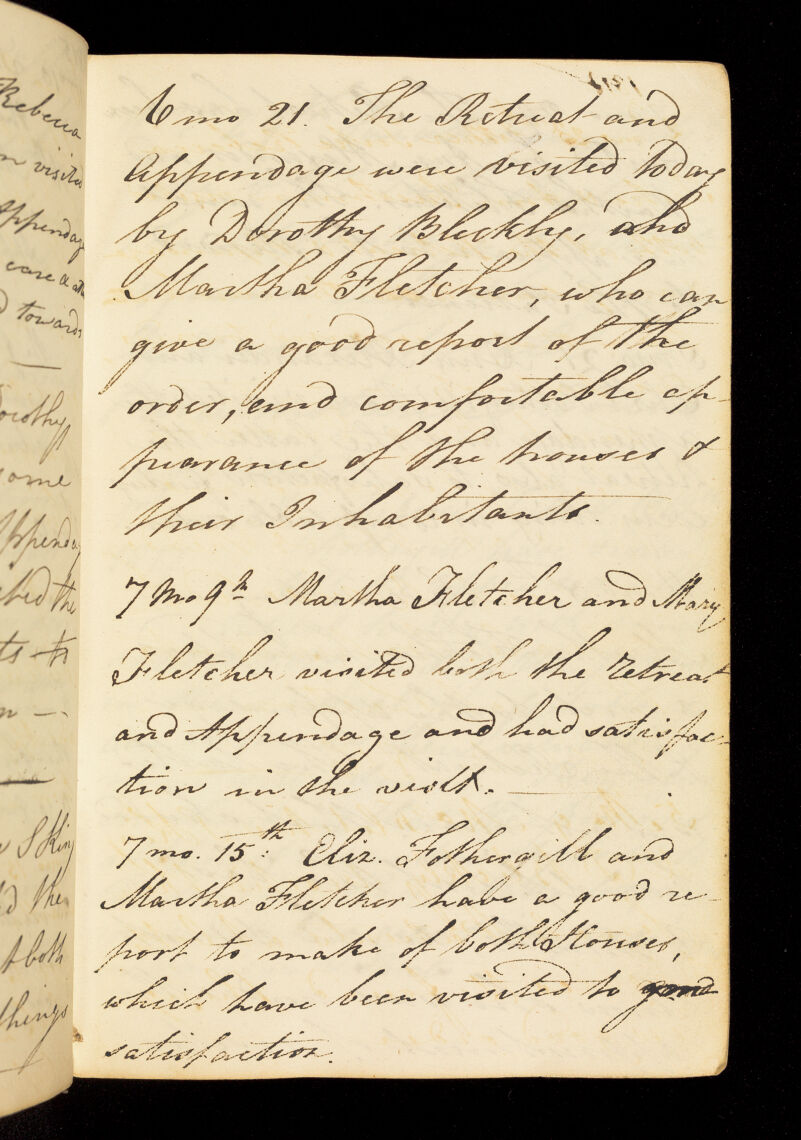 Rebecca
n visited
Appendag
care & att
d towards
Dorothy
some
Appenda
the
ts to
n —
S King
d the
& both
things
6 mo 21. The Retreat and
Appendage were visited today
by Dorothy Bleckly, and
Martha Fletcher, who can
give a good report of the
order, and comfortable ap-
pearance of the houses &
their Inhabitants.
7 Mo 9th Martha Fletcher and Mary
Fletcher visited both the retreat
and Appendage and had satisfac-
tion in the visit. —
7 mo. 15th. Eliz. Fothergill and
Martha Fletcher have a good re-
port to make of both Houses,
which have been visited to good
satisfaction.